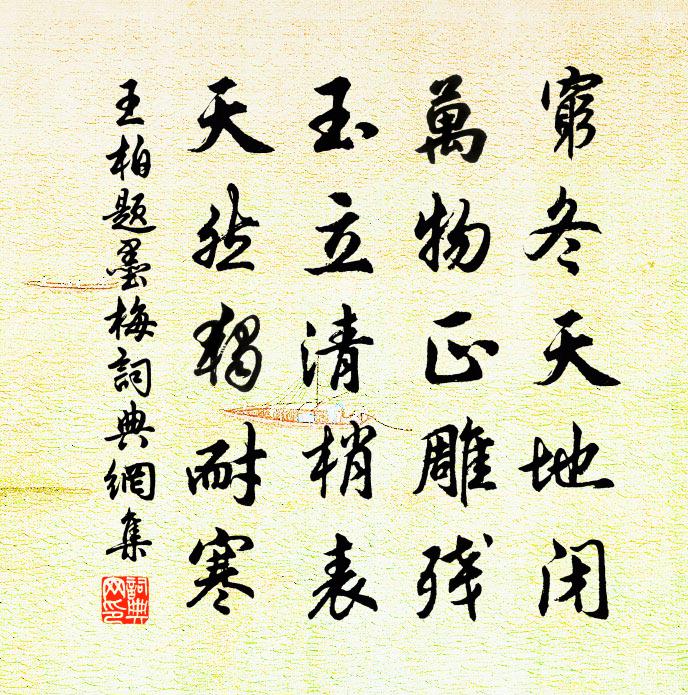 窮冬天地闭
萬物正雕残
玉立清梢表
天然獨耐寒
王柏題墨梅詞典網集
詞典网印